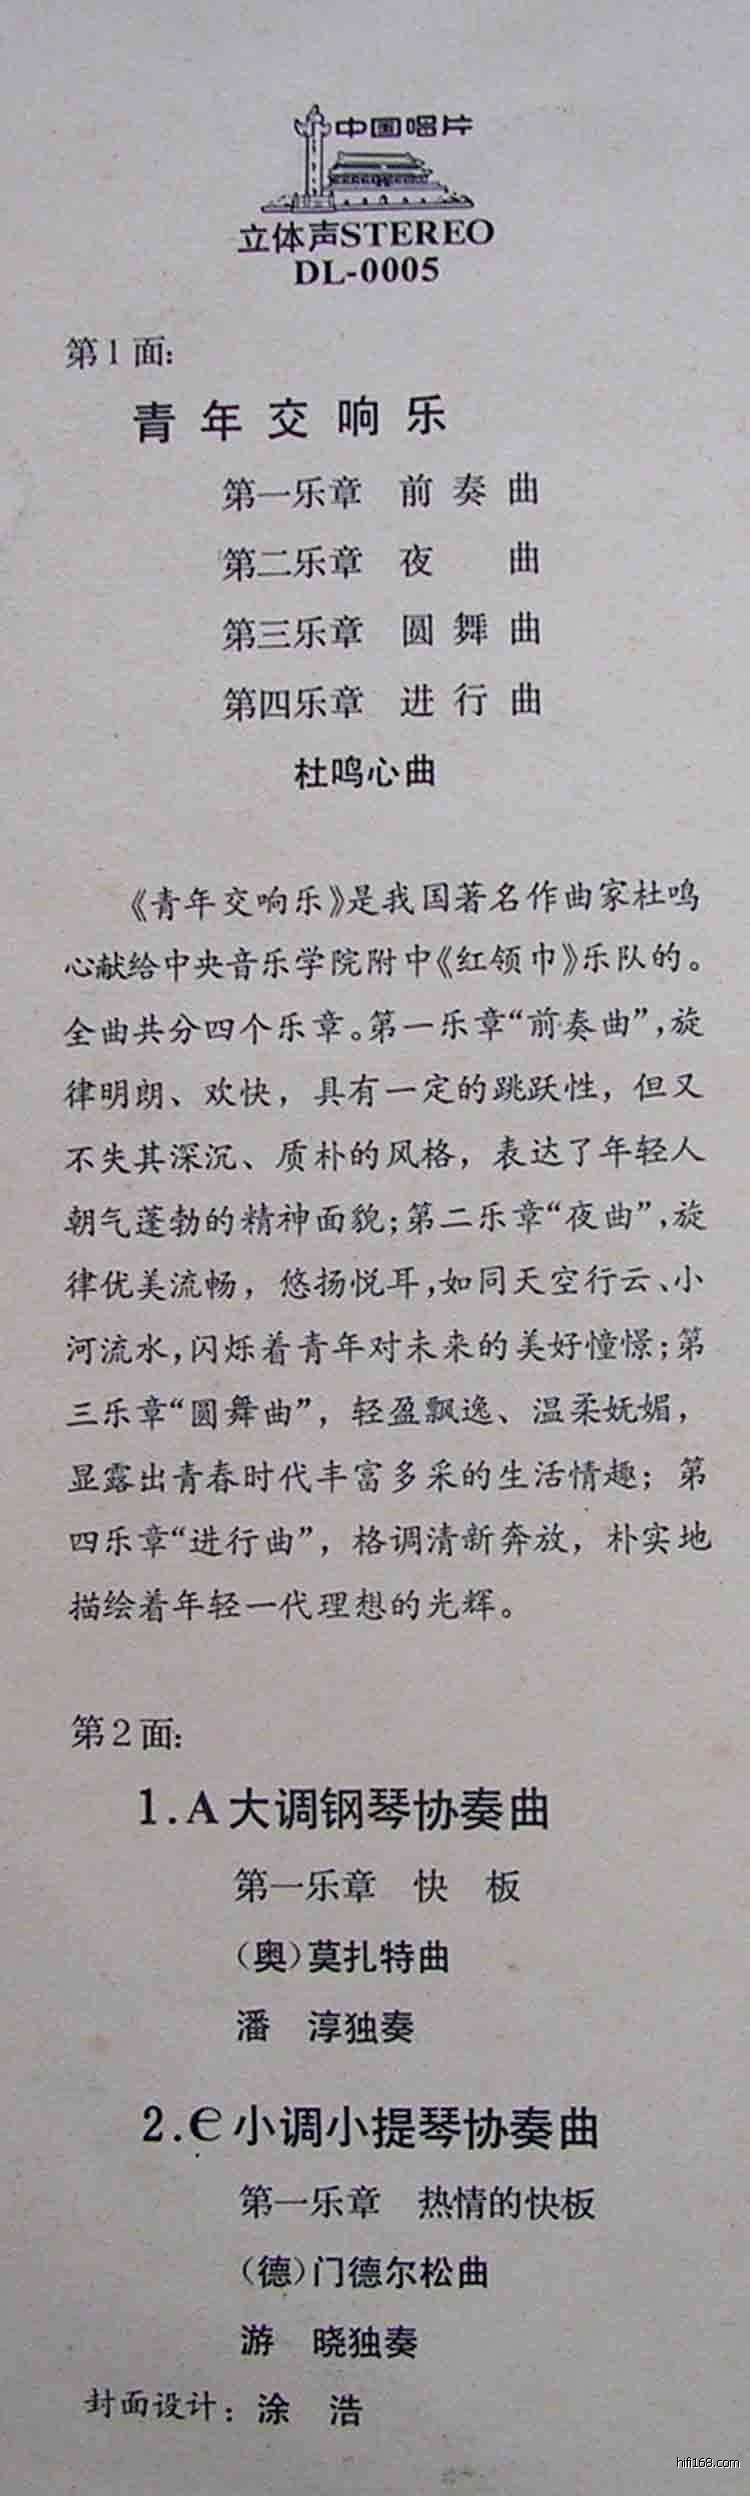 中国唱片
立体声STEREO
DL-0005
第1面:
青年交响乐
第一乐章 前奏曲
第二乐章 夜 曲
第三乐章 圆舞曲
第四乐章 进行曲
杜鸣心曲
《青年交响乐》是我国著名作曲家杜鸣
心献给中央音乐学院附中《红领巾》乐队的。
全曲共分四个乐章。第一乐章“前奏曲”,旋
律明朗、欢快，具有一定的跳跃性，但又
不失其深沉、质朴的风格，表达了年轻人
朝气蓬勃的精神面貌;第二乐章“夜曲”,旋
律优美流畅，悠扬悦耳,如同天空行云、小
河流水,闪烁着青年对未来的美好憧憬;第
三乐章“圆舞曲”，轻盈飘逸、温柔妩媚，
显露出青春时代丰富多采的生活情趣；第
四乐章“进行曲”，格调清新奔放，朴实地
描绘着年轻一代理想的光辉。
第2面:
1.A大调钢琴协奏曲
第一乐章 快 板
(奥)莫扎特曲
潘 淳独奏
2.e小调小提琴协奏曲
第一乐章 热情的快板
(德)门德尔松曲
游 晓独奏
封面设计：涂 浩
hifi168.com